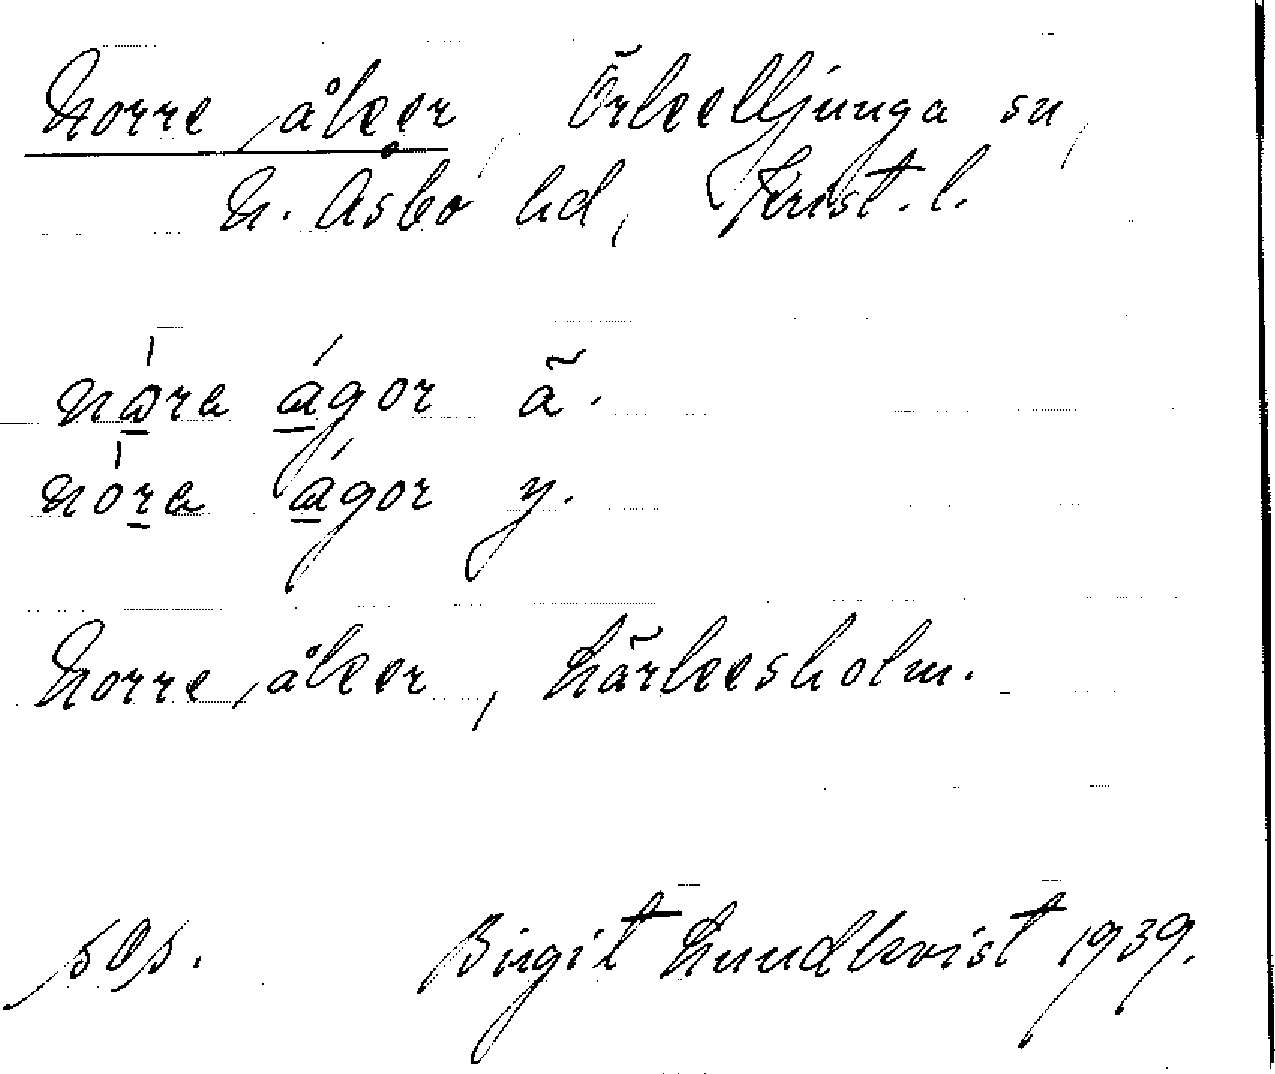 Norre åker, Örkelljunga sn,
N. Åsbo hd, Krist. l.
nåra ågor ä.
nora ågor y.
Norre åker, Lärkesholm.
Birgit Lundkvist 1939.